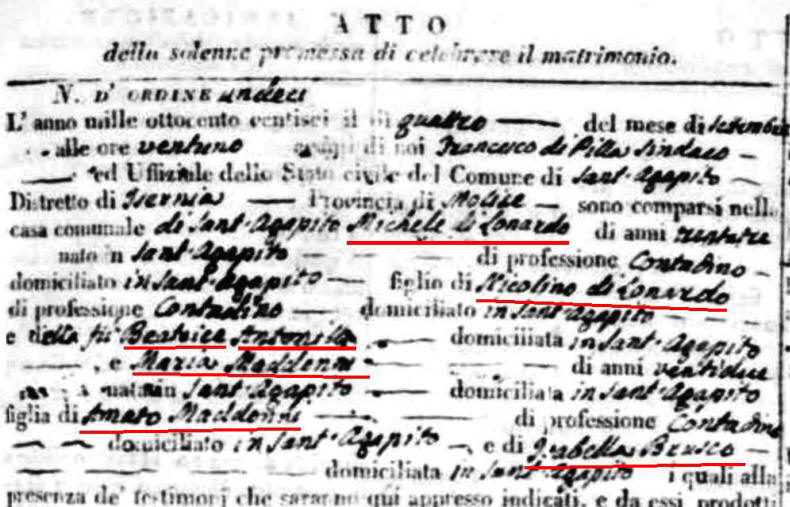 ATTO
della solenne promessa di celebrare il matrimonio.
N. D' ORDINE undeci
L' anno mille ottocento ventisei il dì quattro del mese di settembre
alle ore ventuno di noi Francesco di Pilla Sindaco
ed Uffiziale dello Stato civile del Comune di Sant'Agapito
Distretto di Isernia Provincia di Molise sono comparsi nella
casa comunale di Sant'Agapito Michele di Lonardo di anni trentatre
nato in Sant'Agapito di professione Contadino
domiciliato in Sant'Agapito figlio di Nicolino di Lonardo
di professione Contadino domiciliato in Sant'Agapito
e della fù Beatrice Antonilla domiciliata in Sant'Agapito
e Maria Maddonni di anni ventidue
nata in Sant'Agapito domiciliata in Sant'Agapito
figlia di Amato Maddonni di professione Contadino
domiciliato in Sant'Agapito e di Isabella Brusco
domiciliata in Sant'Agapito i quali alla
presenza de' testimonj che saranno qui appresso indicati, e da essi prodotti